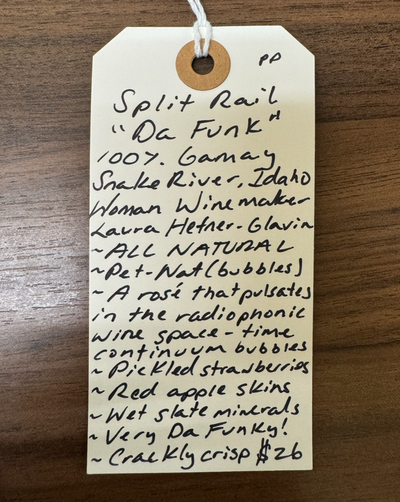 PP
Split Rail
"Da Funk"
100%. Gamay
Snake River, Idaho
Woman Winemaker
Laura Hefner-Glavin
~ALL NATURAL
~Pet-Nat (bubbles)
~A rosé that pulsates
in the radiophonic
wine space-time
continuum bubbles
~Pickled strawberries
~Red apple skins
~Wet slate minerals
~Very Da Funky!
~Crackly crisp $26